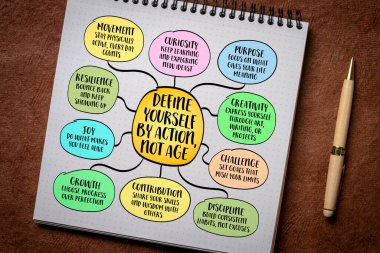 MOVEMENT
STAY PHYSICALLY
ACTIVE, EVERY DAY
COUNTS
CURIOSITY
KEEP LEARNING
AND EXPLORING
NEW IDEAS!
PURPOSE
FOCUS ON WHAT
GIVES YOUR LIFE
MEANING
RESILIENCE
BOUNCE BACK
AND KEEP
SHOWING UP
DEFINE
YOURSELF
BY ACTION,
NOT AGE
CREATIVITY
EXPRESS YOURSELF
THROUGH ART,
WRITING, OR
PROJECTS
JOY
DO WHAT MAKES
YOU FEEL ALIVE
CHALLENGE
SET GOALS THAT
PUSH YOUR LIMITS
GROWTH
CHOOSE PROGRESS
OVER PERFECTION
CONTRIBUTION
SHARE YOUR SKILLS
AND WISDOM WITH
OTHERS
DISCIPLINE
BUILD CONSISTENT
HABITS, NOT EXCUSES